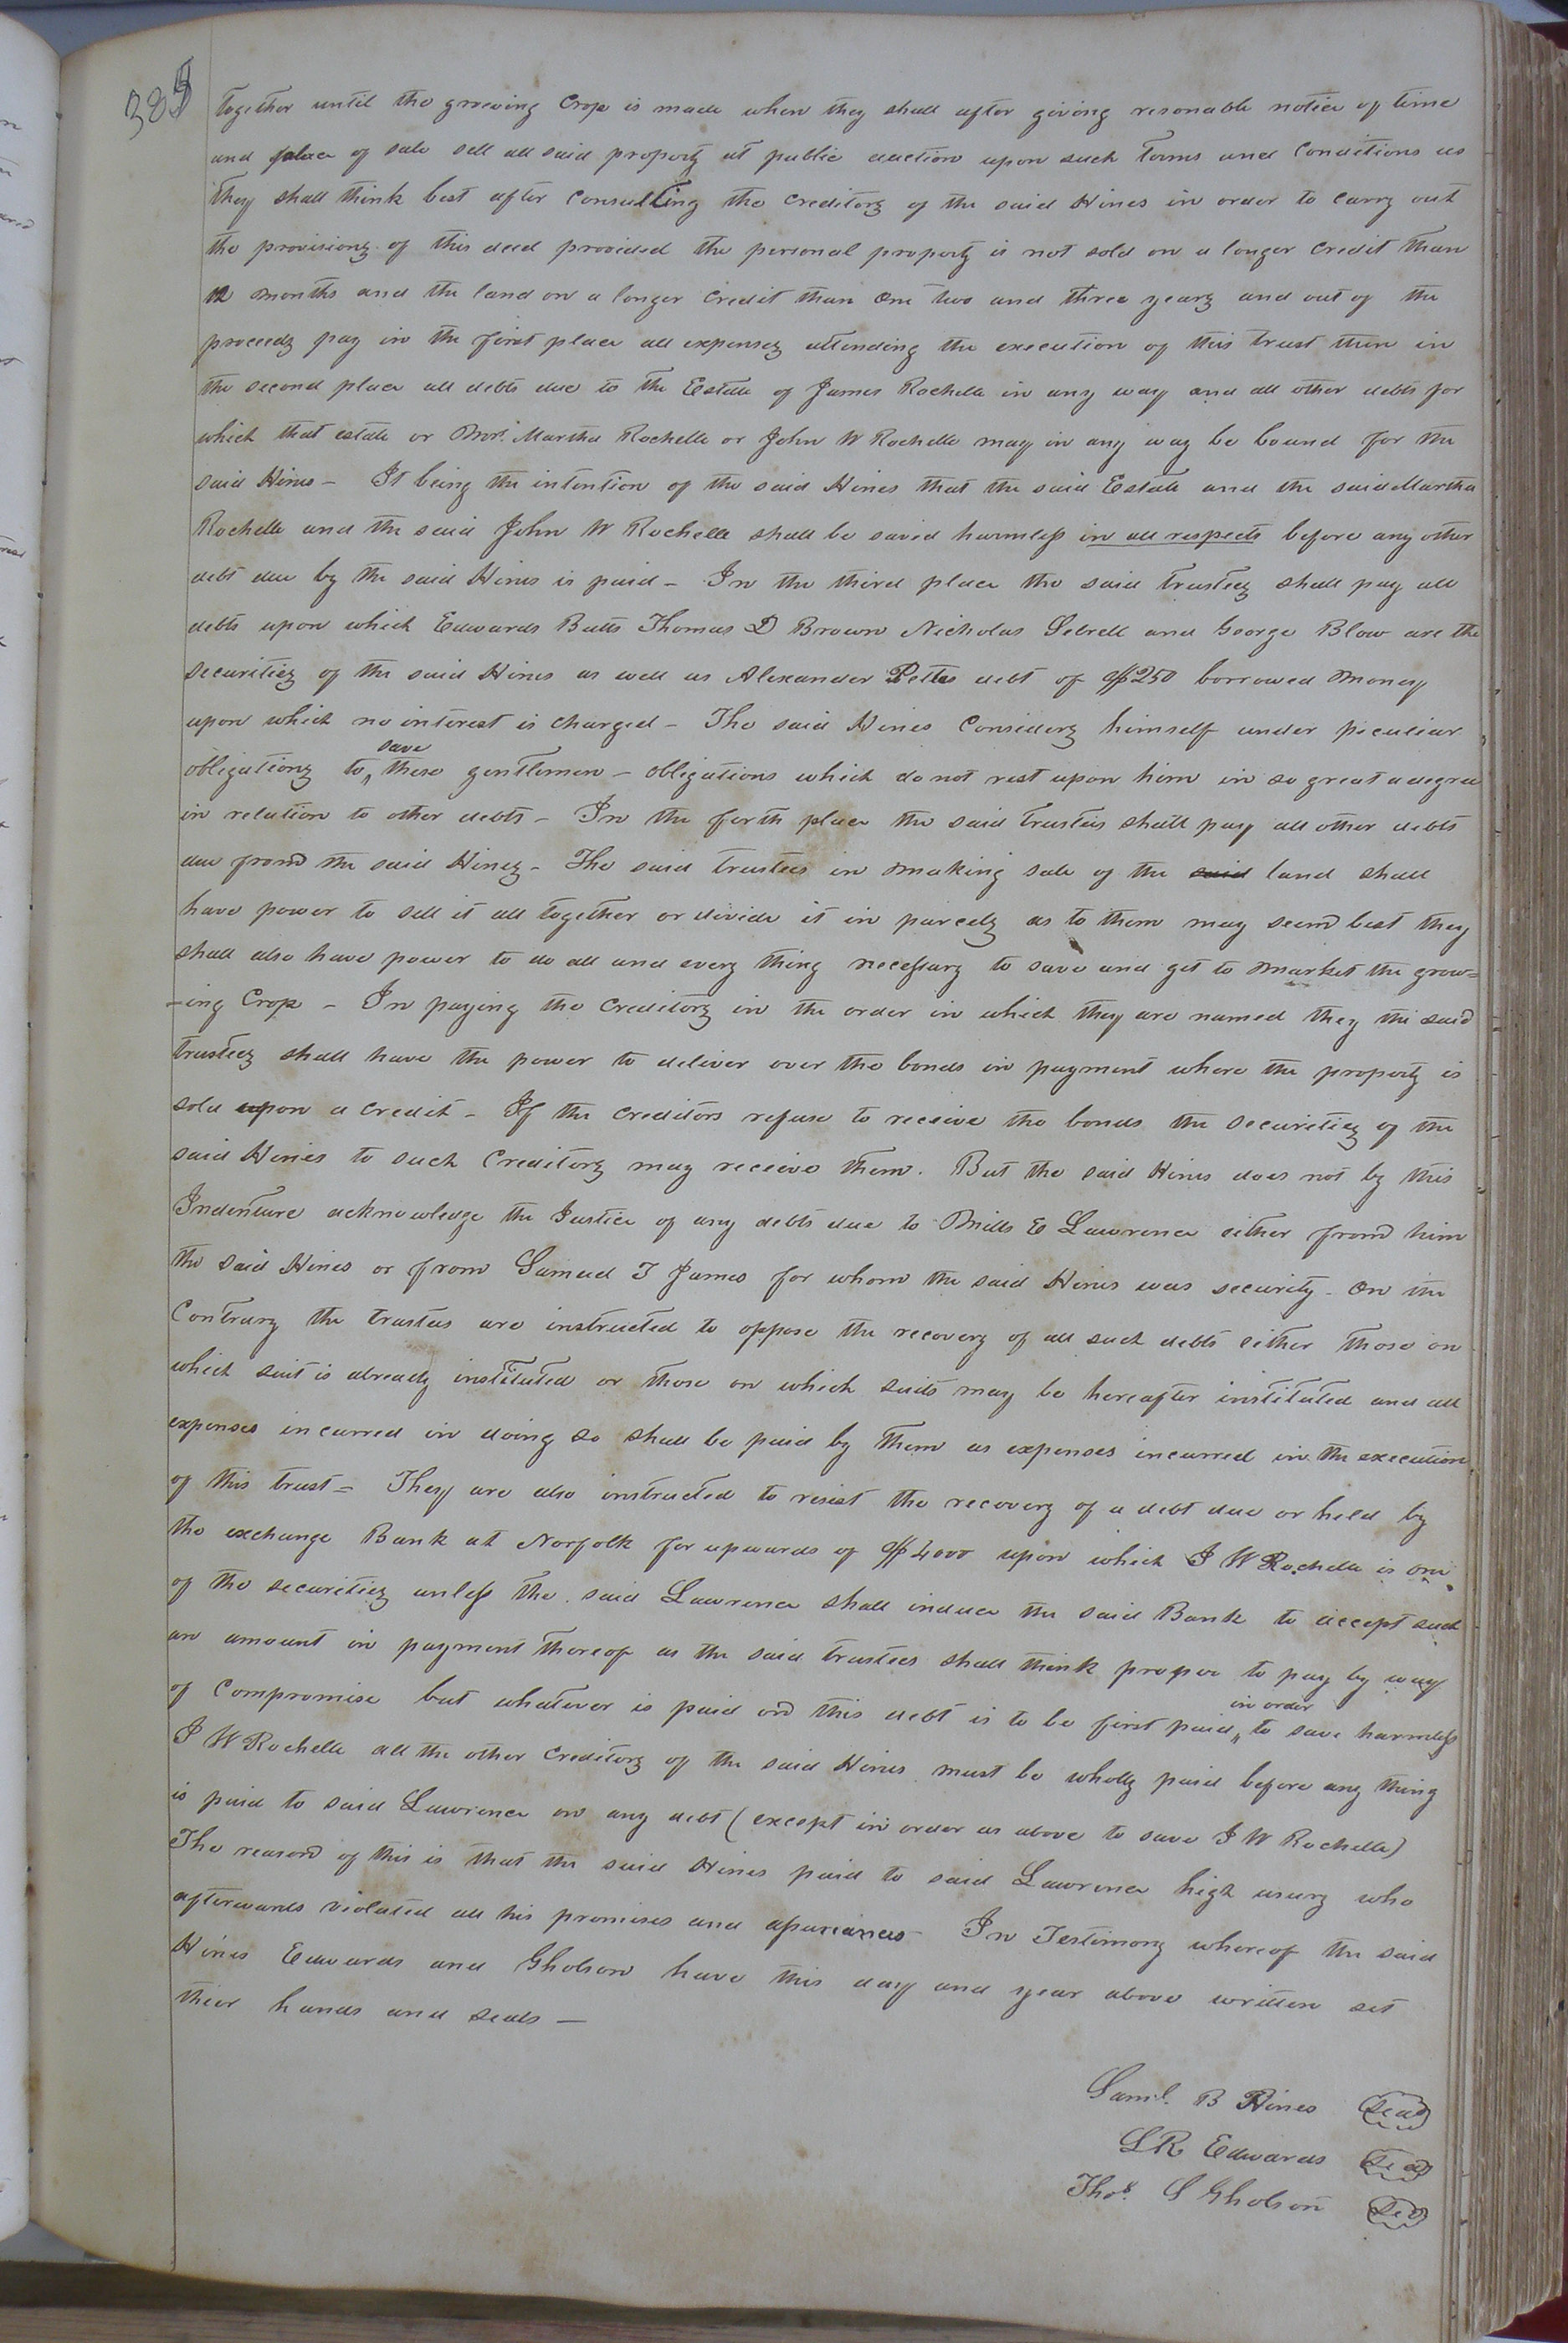 385
together until the growing Crop is made when they shall after giving resonable notice of time
and place of sale sell all said property at public auction upon such Terms and Conditions as
they shall think best after Consulting the Creditors of the said Hines in order to Carry out
the provisions of this deed provided the personal property is not sold on a longer Credit than
12 months and the land on a longer Credit than One two and three years and out of the
proceeds pay in the first place all expenses attending the execution of this trust then in
the second place all debts due to the Estate of James Rochelle in any way and all other debts for
which that estate or Mrs. Martha Rochelle or John W Rochelle may in any way be bound for the
said Hines - It being the intention of the said Hines that the said Estate and the said Martha
Rochelle and the said John W Rochelle shall be saved harmless in all respects before any other
debt due by the said Hines is paid - In the third place the said trustees shall pay all
debts upon which Edwards Butts Thomas D Brown Nicholas Sebrell and George Blow are the
securities of the said Hines as well as Alexander Pettes debt of $250 borrowed money
upon which no interest is charged - The said Hines Considers himself under peculiar
obligations to save these gentlemen - obligations which do not rest upon him in so great a degree
in relation to other debts - In the forth place the said trustees shall pay all other debts
due from the said Hines - The said trustees in making sale of the said land shall
have power to sell it all together or divide it in parcels as to them may seem best they
shall also have power to do all and every thing necessary to save and get to market the grow=
-ing Crop - In paying the Creditors in the order in which they are named they the said
trustees shall have the power to deliver over the bonds in payment where the property is
sold upon a credit - If the creditors refuse to receive the bonds the securities of the
said Hines to such Creditors may receive them. But the said Hines does not by this
Indenture acknowledge the Justice of any debts due to Mills E Lawrence either from him
the said Hines or from Samuel T James for whom the said Hines was security - On the
Contrary the trustees are instructed to oppose the recovery of all such debts either those on
which suit is already instituted or those on which suits may be hereafter instituted and all
expenses incurred in doing so shall be paid by them as expenses incurred in the execution
of this trust - They are also instructed to resist the recovery of a debt due or held by
the exchange Bank at Norfolk for upwards of $4000 upon which J W Rochelle is one
of the securities unless the said Lawrence shall induce the said Bank to accept such
an amount in payment thereof as the said trustees shall think proper to pay by way
of Compromise but whatever is paid on this debt is to be first paid in order to save harmless
J W Rochelle all the other Creditors of the said Hines must be wholly paid before any thing
is paid to said Lawrence on any debt (except in order as above to save J W Rochelle)
The reason of this is that the said Hines paid to said Lawrence high usury who
afterwards violated all his promises and assurances - In Testimony whereof the said
Hines Edwards and Gholson have this day and year above written set
their hands and seals -
Saml. B Hines Seal
L R Edwards Seal
Thos. S Gholson Seal